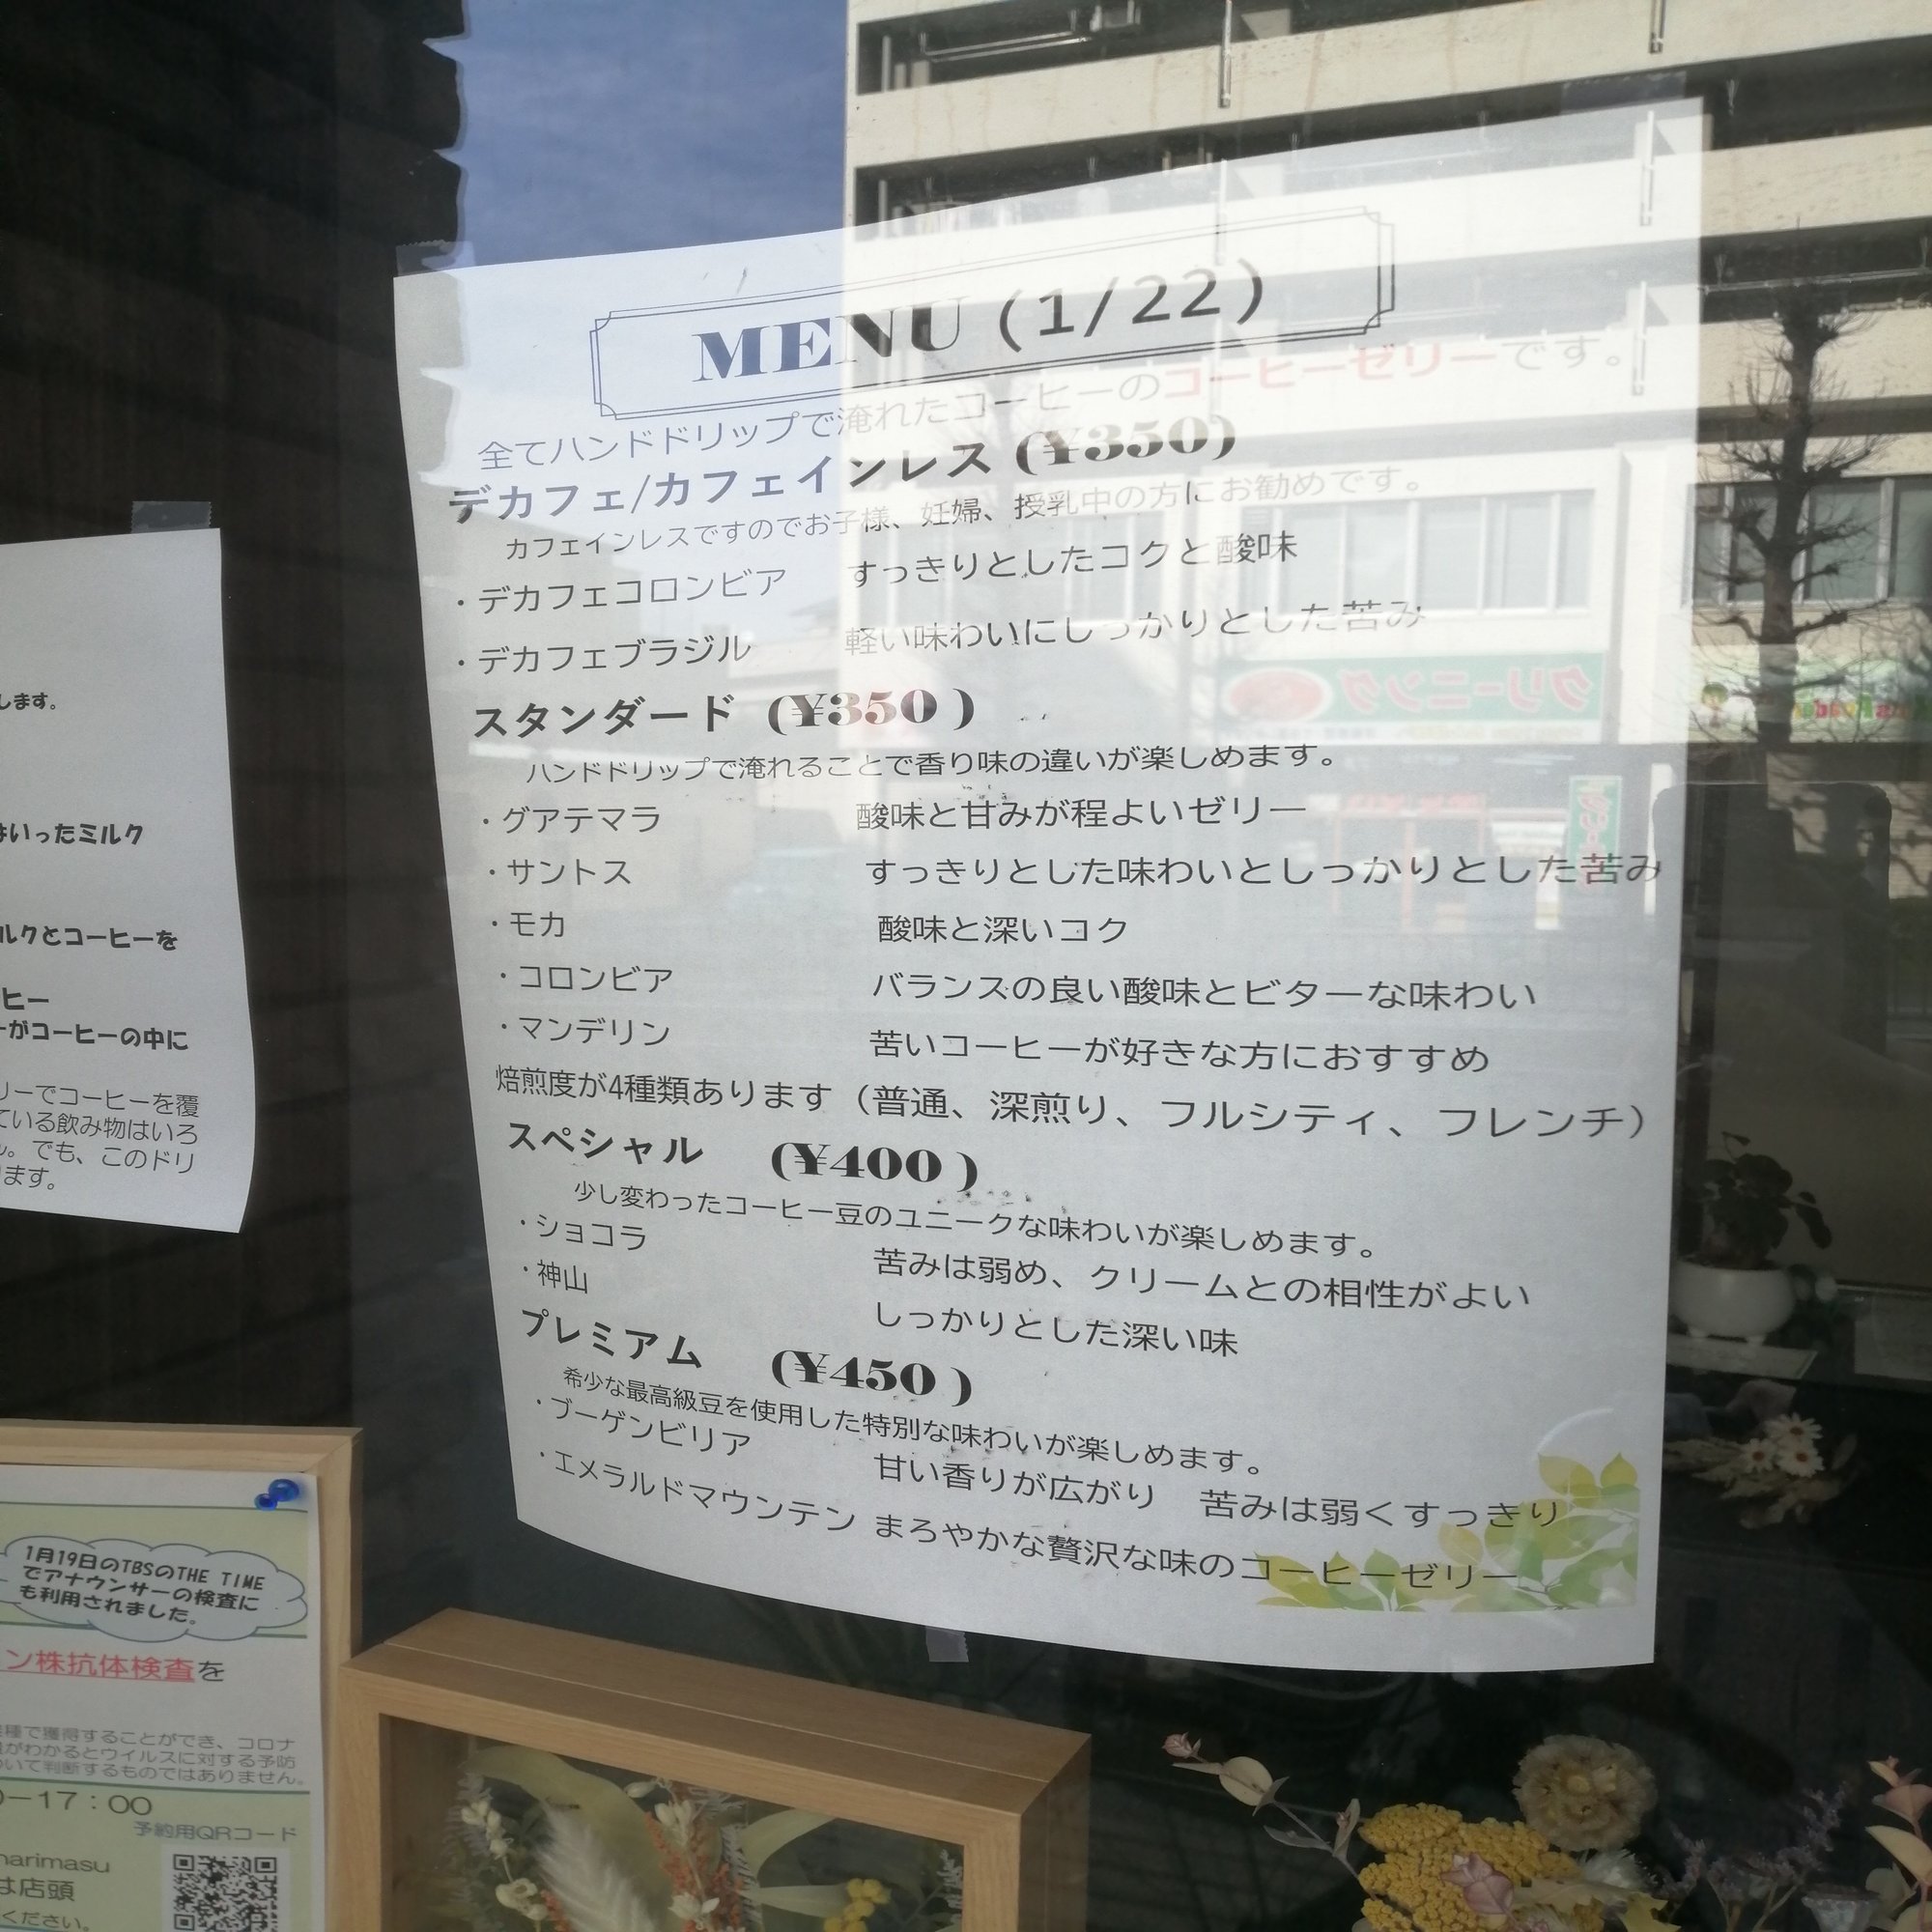 MENU (1/22)
全てハンドドリップで淹れたコーヒーのコーヒーゼリーです。
デカフェ/カフェインレス (¥350)
カフェインレスですのでお子様、妊婦、授乳中の方にお勧めです。
・デカフェコロンビア すっきりとしたコクと酸味
・デカフェブラジル 軽い味わいにしっかりとした苦み
スタンダード (¥350 )
ハンドドリップで淹れることで香り味の違いが楽しめます。
・グアテマラ 酸味と甘みが程よいゼリー
・サントス すっきりとした味わいとしっかりとした苦み
・モカ 酸味と深いコク
・コロンビア バランスの良い酸味とビターな味わい
・マンデリン 苦いコーヒーが好きな方におすすめ
焙煎度が4種類あります（普通、深煎り、フルシティ、フレンチ）
スペシャル (¥400 )
少し変わったコーヒー豆のユニークな味わいが楽しめます。
・ショコラ 苦みは弱め、クリームとの相性がよい
・神山 しっかりとした深い味
プレミアム (¥450 )
希少な最高級豆を使用した特別な味わいが楽しめます。
・ブーゲンビリア 甘い香りが広がり 苦みは弱くすっきり
・エメラルドマウンテン まろやかな贅沢な味のコーヒーゼリー
します。
はいったミルク
ルクとコーヒーを
ヒー
ーがコーヒーの中に
リーでコーヒーを覆
ている飲み物はいろ
ん。でも、このドリ
ります。
1月19日のTBSのTHE TIME
でアナウンサーの検査に
も利用されました。
ン株抗体検査を
種で獲得することができ、コロナ
がわかるとウイルスに対する予防
ついて判断するものではありません。
0－17：00
予約用QRコード
narimasu
は店頭
ください。
クリーニング